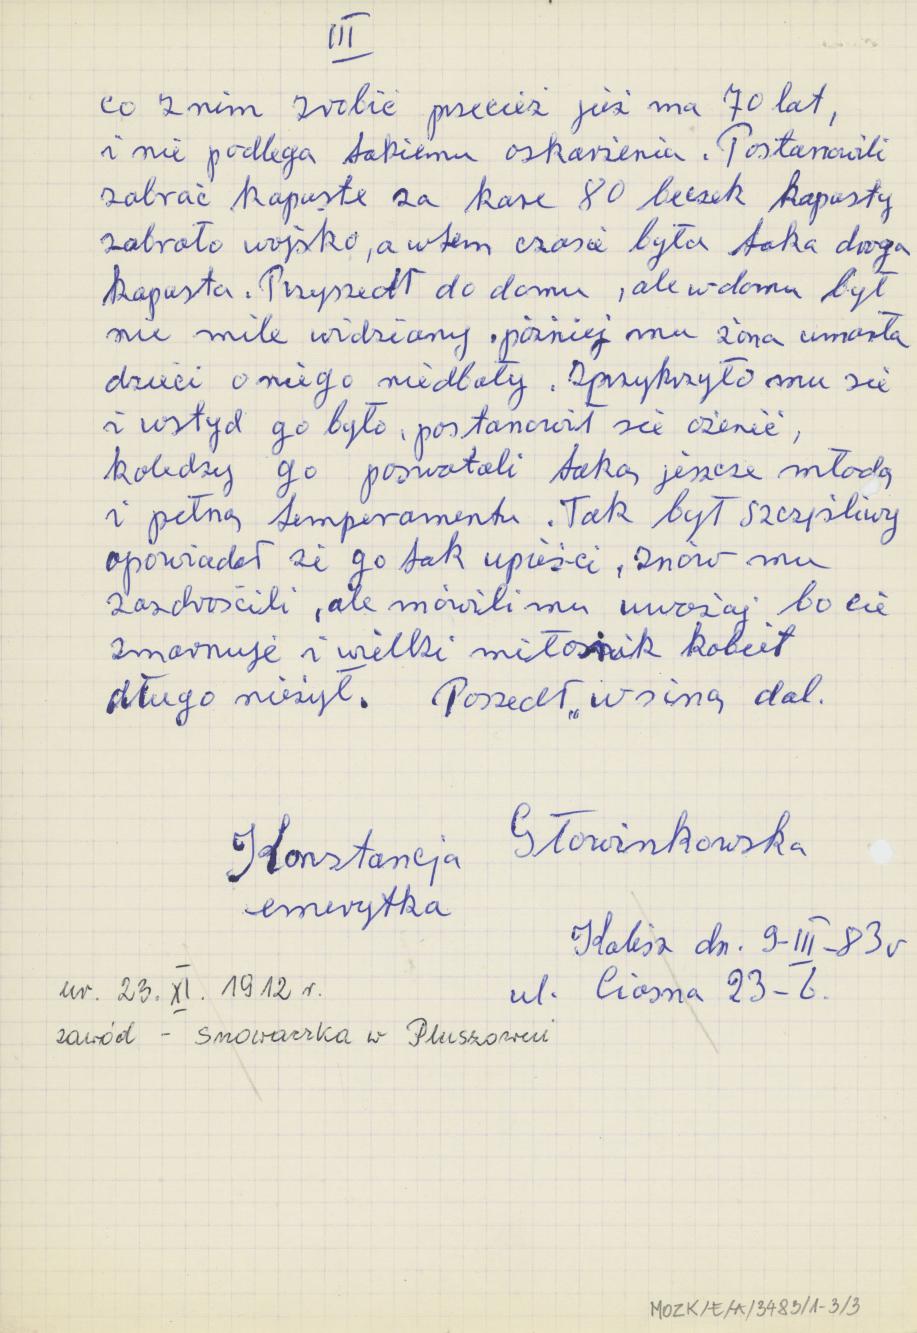 III
co z nim zrobić przecież już ma 70 lat,
i nie podlega takiemu oskarżeniu. Postanowili
zabrać kapuste za kare 80 beczek kapusty
zabrało wojsko, a wtem czasie była taka droga
kapusta. Przyszedł do domu, ale w domu był
nie mile widziany. później mu żona umarła
dzieci o niego niedbały. Sprzykrzyło mu sie
i wstyd go było, postanowił sie ożenić,
koledzy go poswatali taką jeszcze młodą
i pełną temperamentu. Tak był szczyśliwy
opowiadał że go tak upieści, znów mu
zazdrościli, ale mówili mu uważaj bo cie
zmarnuje i wielki miłośnik kobiet
długo nieżył. Poszedł „w siną dal.
Konstancja Głowinkowska
emerytka
Kalisz dn. 9-III-83r
ul. Ciasna 23-6.
ur. 23. XI. 1912 r.
zawód - snowaczka w Pluszowni
MOZK/E/A/3483/1-3/3